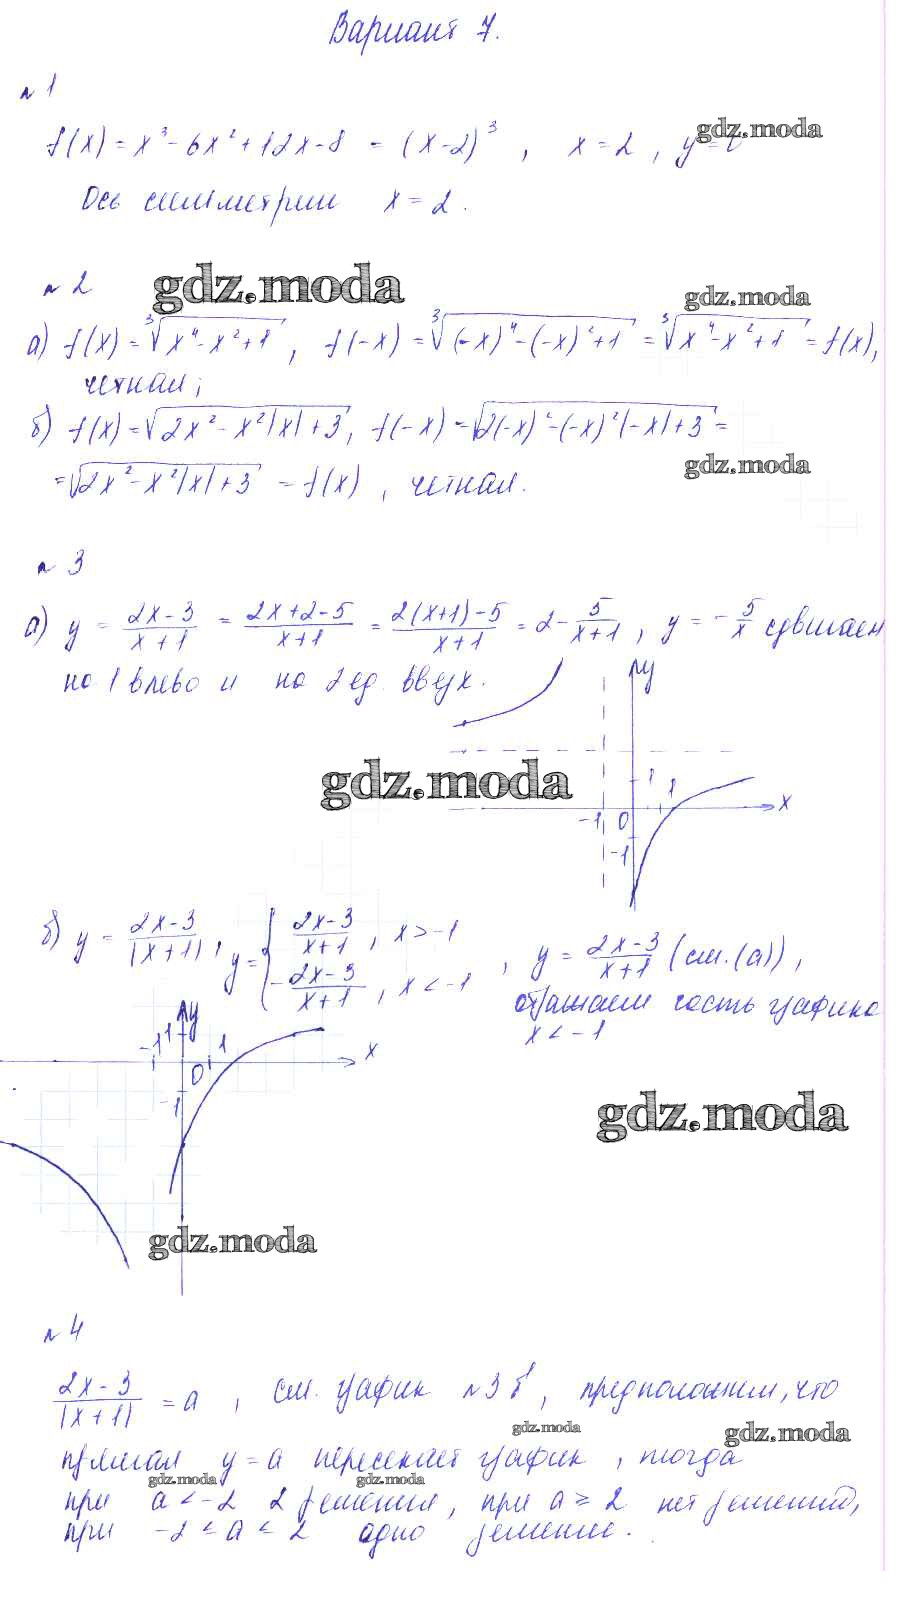 Вариант 7.
№1
f(x) = x³ - 6x² + 12x - 8 = (x-2)³, x = 2, y =
gdz.moda
Ось симметрии x = 2.
№2
gdz.moda
gdz.moda
а) f(x) = ∛(x⁴ - x² + 1), f(-x) = ∛((-x)⁴ - (-x)² + 1) = ∛(x⁴ - x² + 1) = f(x),
четная;
б) f(x) = √(2x² - x²|x| + 3), f(-x) = √(2(-x)² - (-x)²|-x| + 3) =
gdz.moda
= √(2x² - x²|x| + 3) = f(x), четная.
№3
а) y = (2x-3)/(x+1) = (2x+2-5)/(x+1) = (2(x+1)-5)/(x+1) = 2 - 5/(x+1), y = -5/x сдвигаем
на 1 влево и на 2 ед. вверх.
y
gdz.moda
1 1 x
-1 0
-1
б) y = (2x-3)/|x+1|, y = { (2x-3)/(x+1), x > -1
-(2x-3)/(x+1), x < -1, y = (2x-3)/(x+1) (см. (а)),
отражаем часть графика
x < -1
y
-1 1 1 x
0
-1
gdz.moda
gdz.moda
№4
(2x-3)/|x+1| = a, см. график №3 б, предположим, что
gdz.moda
gdz.moda
прямая y = a пересекает график, тогда
gdz.moda
gdz.moda
при a < -2 2 решения, при a ≥ 2 нет решений,
при -2 ≤ a < 2 одно решение.